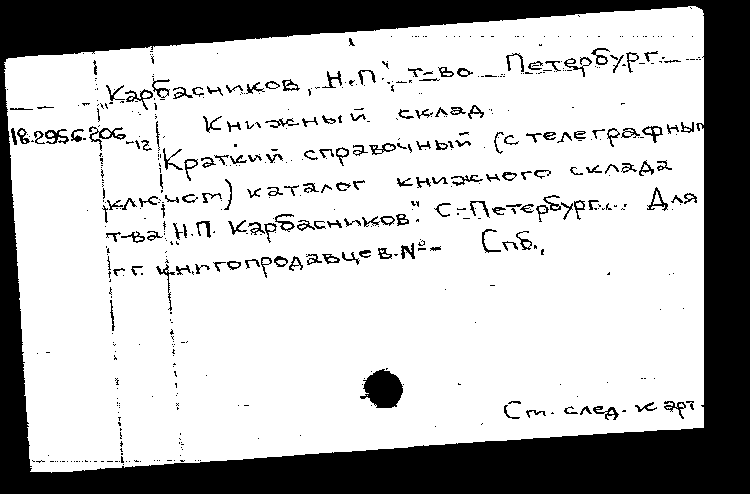 „Карбасников, Н.П.", т-во Петербург.
Книжный склад.
18.295.6.206-12
Краткий справочный (с телеграфным
ключом) каталог книжного склада
т-ва „Н.П. Карбасников". С-Петербург... Для
г.г. книгопродавцев. №- Спб.,
См. след. к-арт.